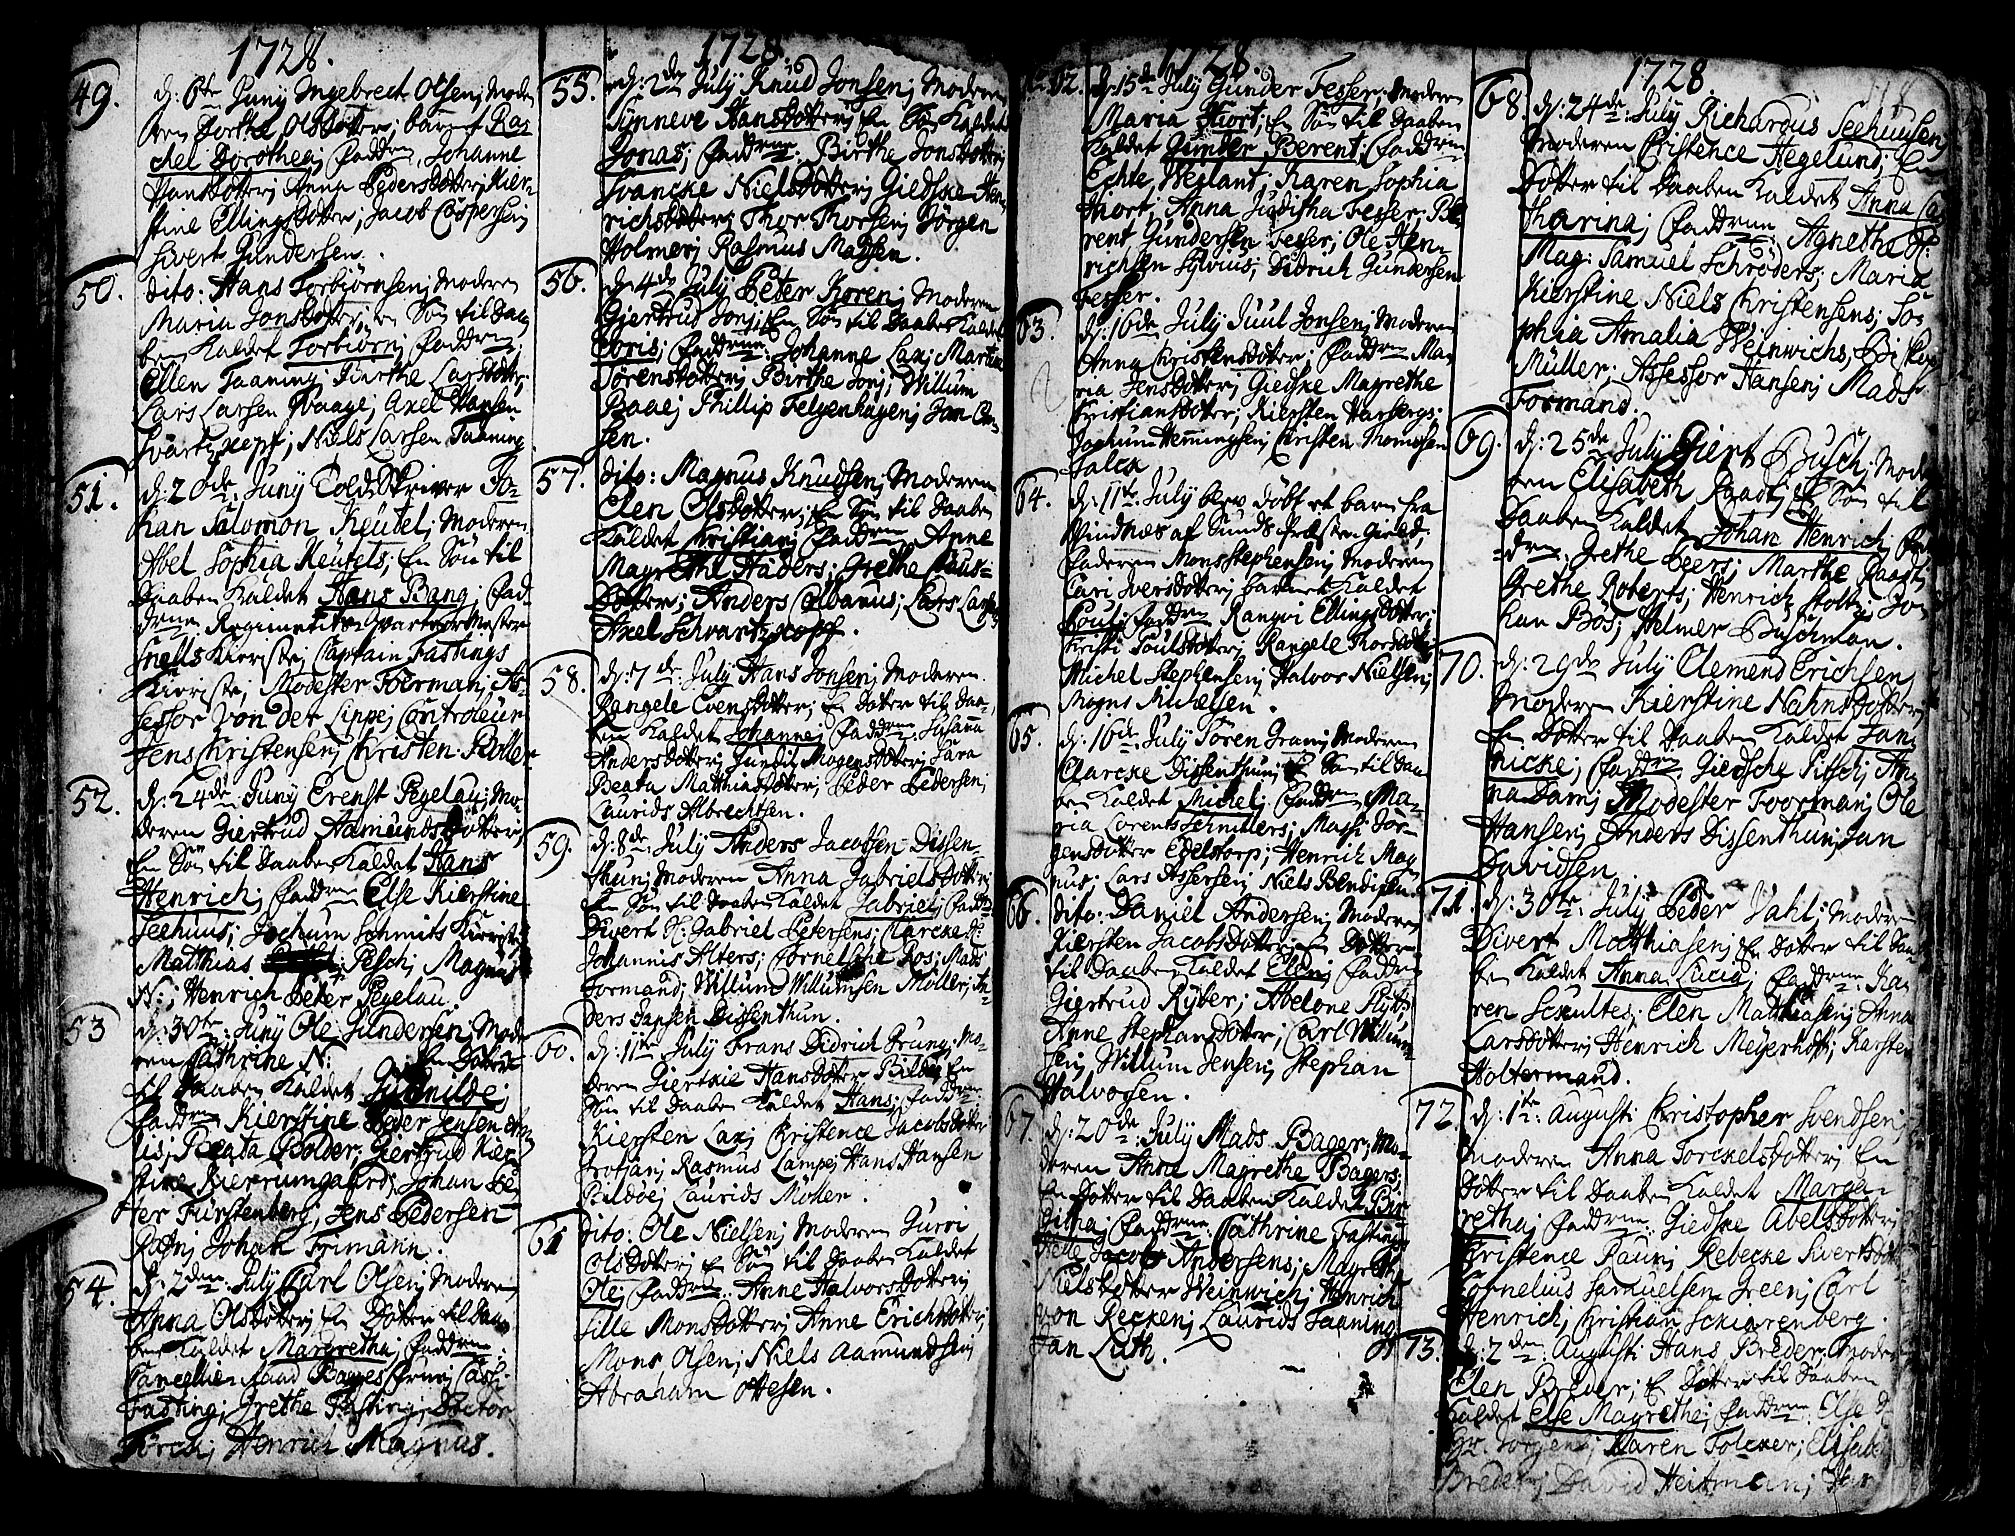 1728.
49. d: 6te Juny Ingebrect Olsen; Mode
ren Dorthe Olsdotter; barnet Ra-
chel Dorothea; Fadd: Johanne
Hansdotter; Anne Pedersdotter; Kier-
stine Ellingsdotter; Jacob Caspersen;
Sivert Gundersen.
50. dito: Hans Torbjørnsen; Moderen
Maria Jonsdotter; en Søn til Daa
ben Kaldet Torbiørn; Fadd:
Ellen Taaning; Birthe Larsdotter;
Lars Larsen Vaage; Axel Hansen
Svartzkopf; Niels Larsen Taaning
51. d: 20de Juny Told Skriver Jo-
han Salomon Keutel; Moderen
Abel Sophia Keutels; En Søn til
Daaben Kaldet Hans Bang; Fad-
Regiments Qvarteermester
Snells Kierste; Captain Fastings
Kierste; Modester Foerman; As-
sessor Von der Lippe; Controleur
Jens Christensen; Christen Boller
52. d: 24de Juny Erenst Pegelau; Mo-
deren Giertrud Aamundsdotter;
En Søn til Daaben Kaldet Hans
Henrich; Fadd: Else Kierstine
Seehuus; Jochum Schmits Kierste;
Matthias Pesch; Magnus
N:; Henrich Peter Pegelau.
53 d: 30te Juny Ole Gundersen; Mode
ren Cathrine N: En Dotter
til Daaben Kaldet Gunnilde;
Fadd: Kierstine Peder Jensen
Beata Bolder; Giertrud Kier
stine Kierrumgaard; Johan Pe-
ter Fürstenberg; Jens Pedersen
Johan Frimann.
54. d: 2den July Carl Olsen; Moderen
Anna Olsdotter; En Dotter til Daa
ben Kaldet Margretha; Fadd:
Cancellie Raad
Fasting; Grethe Fasting; Doctor
Henrich Magnus.
1728.
55. d: 2den July Knud Jonsen; Moderen
Sünneve Hansdotter; En Søn Kaldet
Jonas; Fadd: Birthe Jonsdotter;
Svancke Nielsdotter; Giedske Hen
richsdotter; Thor Thorsen; Jörgen
Holmer; Rasmus Madsen.
56. d: 4de July Peter Koren; Moderen
Giertrud Jons; En Søn til Daaben Kaldet
Joris; Fadd: Johanne Lax; Martha
Sörensdotter; Birthe Jons; Willum
Baae; Phillip Felgenhagen; Jan On-
sen.
57. dito: Magnus Knudsen; Moderen
Elen Olsdotter; En Søn til Daaben
Kaldet Christian; Fadd: Anne
Magrethe Haders; Grethe Paus-
dotter; Anders Calvanus; Lars Larsen
Axel Schvartzkopf.
58. d: 7de July Hans Jonsen; Moderen
Rangele Evensdotter; En Dotter til Daa-
ben Kaldet Johanne; Fadd: Susanna
Andersdotter; Gundil Mogensdotter; Sara
Beata Matthiasdotter; Peder Pedersen;
Laurids Albrechtsen.
59. d: 8de July Anders Jacobsen Dissen-
thun; Moderen Anna Gabrielsdotter;
En Søn til Daaben Kaldet Gabriel; Fadd:
Divert Hr: Gabriel Petersens; Marcke Hr:
Johannis Alters; Cornelsche Ros; Mads
Formand; Willum Willumsen Möller; An-
ders Jansen Dissenthun.
60. d: 11te July Frans Didrich Prüng; Mo-
deren Giertkie Hansdotter Bildøe; En
Søn til Daaben Kaldet Hans; Fadd:
Kiersten Lax; Christence Jacobsdotter
Grotjan; Rasmus Lampe; Hans Hansen
Bildöe; Laurids Möller.
61 dito: Ole Nielsen; Moderen Gurri
Olsdotter; En Søn til Daaben Kaldet
Ole; Fadd: Anne Halvorsdotter;
Sille Monsdotter; Anne Erichsdotter;
Mons Olsen; Niels Aamundsen;
Abraham Ottesen.
1728.
62. d: 15de July Gunder Fesser; Moderen
Maria Hiort; En Søn til Daaben
Kaldet Günder Berent; Fadd:
Echte Weylant; Karen Sophia
Hiort; Anna Juditha Fesser; Be
rent Gundersen Fesser; Ole Hen
richsen Sylvius; Didrich Gundersen
Fesser.
63. d: 16de July Juul Jonsen; Moderen
Anna Christensdotter; Fadd: Ma
ria Jensdotter; Giedske Magrethe
Christiansdotter; Kiersten Harbergs;
Jochum Henningsen; Christen Thomassen
Falck
64. d: 11te July blev döbt et barn fra
Vindnæs af Sunds Præstegield;
Faderen Mons Stephensen; Moderen
Cari Iversdotter; barnet Kaldet
Poul; Fadd: Rangvi Ellingsdotter;
Christi Poulsdotter; Rangele Thorsdotter
Michel Stephensen; Halvor Nielsen;
Mogns Michelsen.
65. d: 16de July Sören Gram; Moderen
Clarcke Dissenthun; En Søn til Daa
ben Kaldet Michel; Fadd: Ma-
ria Lorents Schnitlers; Massi Jör-
gensdotter Edelstorp; Henrich Mag
nus; Lars Assersen; Niels Bendixen
66. dito: Daniel Andersen; Moderen
Kiersten Jacobsdotter; En Dotter
til Daaben Kaldet Elen; Fadd:
Giertrud Ryber; Abelone Flyts
Anne Stephansdotter; Carl Willum
sen; Willum Jensen; Stephan
Halvorsen.
67. d: 20de July Mads Bager; Mo-
deren Anna Magrethe Bagers;
En Dotter til Daaben Kaldet Bir
githa; Fadd: Cathrine Fastings
Jacob Andersens; Magrete
Nielsdotter Weinwich; Henrich
von Recken; Laurids Taaning;
Jan Luth.
1728.
68. d: 24de July Richardus Seehuusen;
Moderen Christence Hegelund; En
Dotter til Daaben Kaldet Anna Ca
tharina; Fadd: Agnetha Hr:
Mag: Samuel Schröders; Maria
Kierstine Niels Christensens; So-
phia Amalia Weinwichs; Biskop
Müller; Assessor Hansen; Mads
Formand.
69. d: 25de July Giert Busch; Mode
ren Elisabeth Paadt; En Søn til
Daaben Kaldet Johan Henrich; Fad
Grethe Peers; Marthe Paadt;
Grethe Roberts; Henrich Stoltz; Jo
han Bös; Helmer Buschman.
70. d: 29de July Clemend Erichsen;
Moderen Kierstine Nahnsdotter;
En Dotter til Daaben Kaldet Jan-
nicke; Fadd: Giedsche Pitsch; An
na Dam; Modester Foorman; Ole
Hansen; Anders Dissenthun; Jan
Davidsen.
71. d: 30te July Peder Vahl; Moderen
Divert Matthiasen; En Dotter til Daa
ben Kaldet Anna Lucia; Fadd: Ka
ren Scultes; Elen Matthiasen; Anna
Larsdotter; Henrich Meyerhoff; Karsten
Holtermand.
72. d: 1te Augusti Christopher Svendsen;
Moderen Anna Torckelsdotter; En
Dotter til Daaben Kaldet Marga-
retha; Fadd: Giedske Abelsdotter;
Christence Raun; Rebecke Sivertsdotter
Cornelius Samuelsen Green; Carl
Henrich; Christian Scharenberg.
73. d: 2den Augusti Hans Breder; Moder
Elen Breder; E Dotter til Daaben
Kaldet Else Magrethe; Fadd: Else
Jörgens; Karen Folcker; Elisab
Breder; David Heitman;